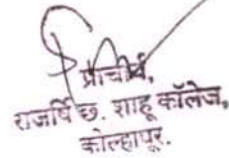 प्राचार्य,
राजर्षि छ. शाहू कॉलेज,
कोल्हापूर.